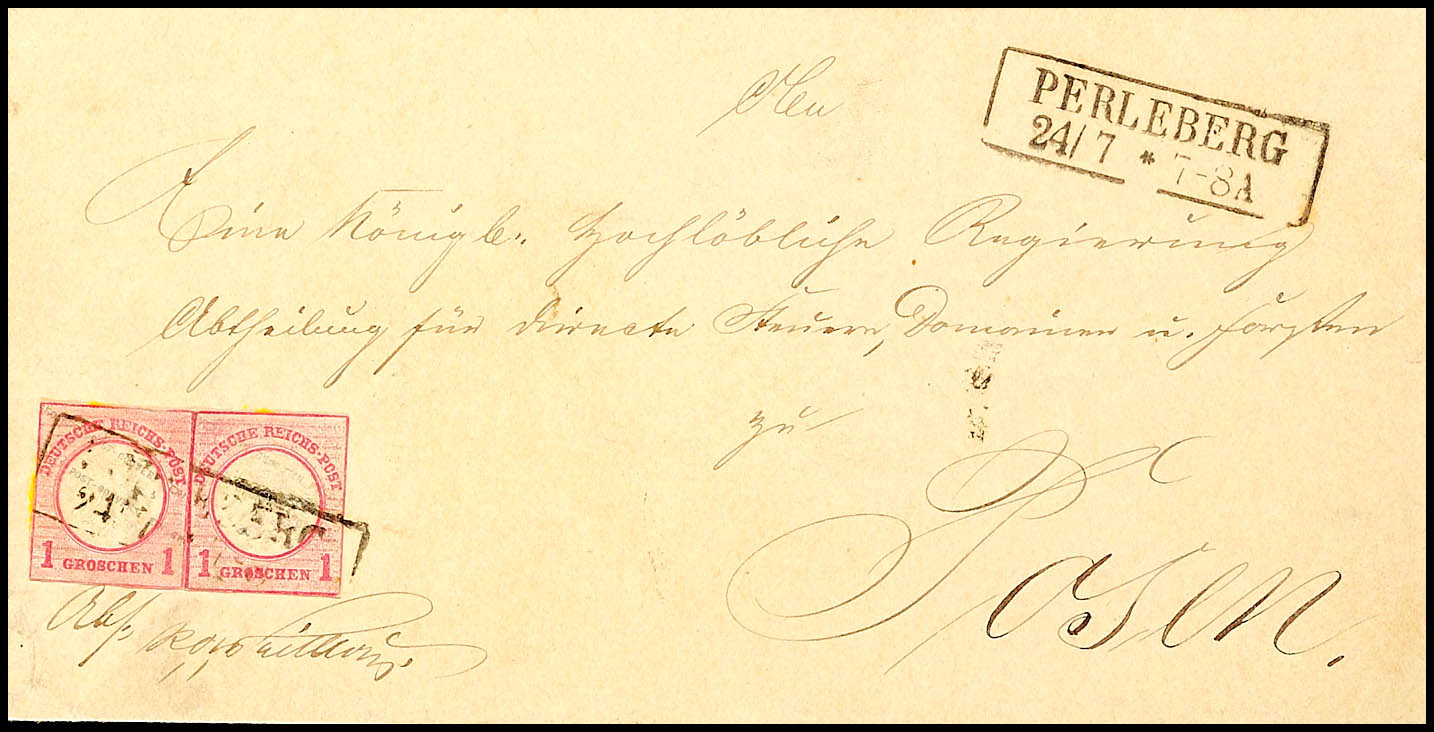 An
PERLEBERG
24/7 * 7-8A
Eine Königl. Hochlöbliche Regierung
Abtheilung für directe Steuern, Domainen u. Forsten
zu
Posen.
DEUTSCHE REICHS-POST DEUTSCHE REICHS-POST
1 GROSCHEN 1 1 GROSCHEN 1
Abs.